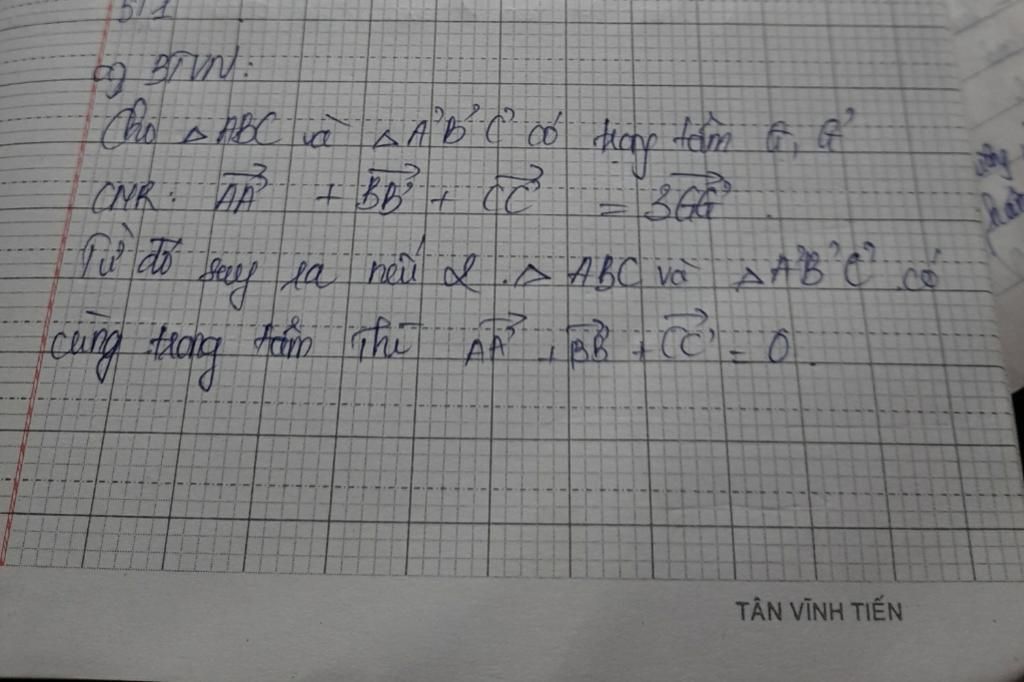 511
BTVN:
Cho △ABC và △A'B'C' có trọng tâm G, G'
CMR: AA' + BB' + CC' = 3GG'.
Từ đó suy ra nếu 2 △ ABC và △A'B'C' có
cùng trọng tâm thì AA' + BB' + CC' = 0.
TÂN VĨNH TIẾN